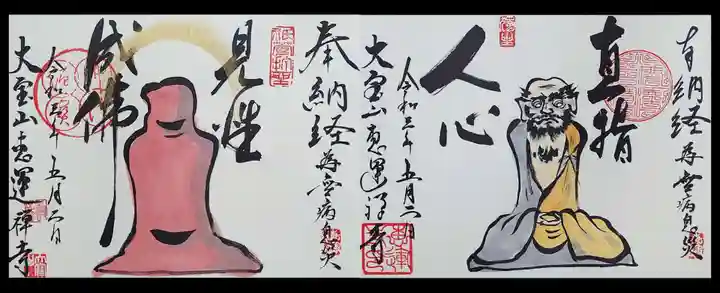 奉納経為無病息災
直指
人心
令和三年五月二日
大宝山恵運禅寺
奉納経為無病息災
見性
成佛
令和三年五月二日
大宝山恵運禅寺